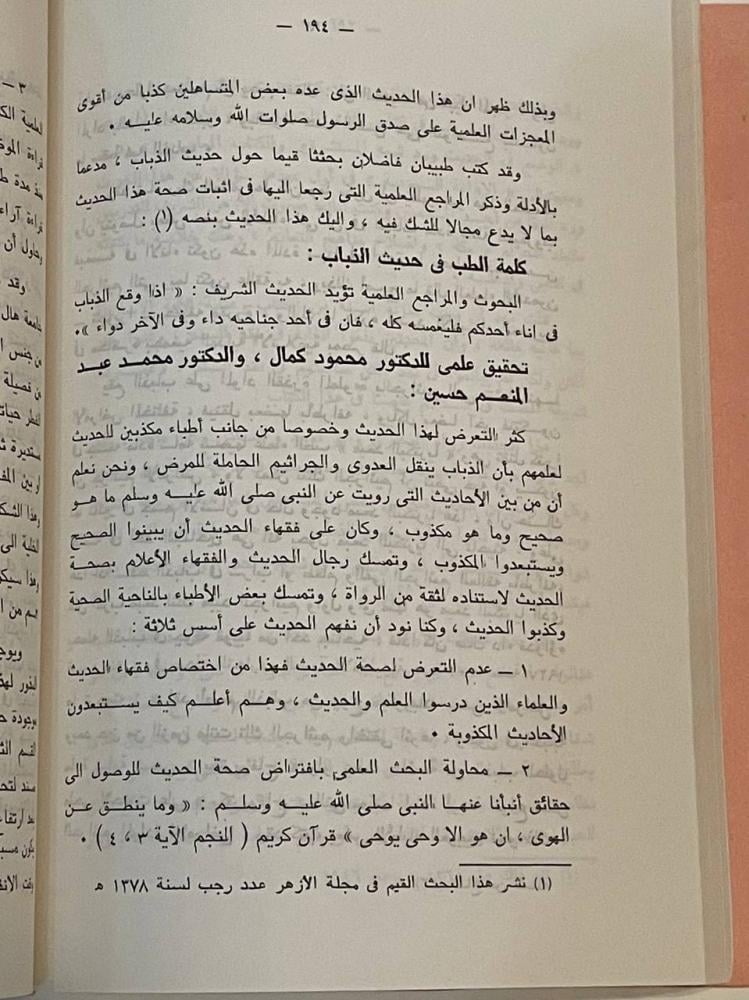 — ١٩٤ —
وبذلك ظهر ان هذا الحديث الذى عده بعض المتساهلين كذبا من أقوى
المعجزات العلمية على صدق الرسول صلوات الله وسلامه عليـــه .
وقد كتب طبيبان فاضلان بحثثا قيما حول حديث الذباب ، مدعما
بالأدلة وذكر المراجع العلمية التى رجعا اليها فى اثبات صحة هذا الحديث
بما لا يدع مجالا للشك فيه ، واليك هذا الحديث بنصه (١) :
كلمة الطب فى حديث الذباب :
البحوث والمراجع العلمية تؤيد الحديث الشريف : « اذا وقع الذباب
فى اناء أحدكم فليغمسه كله ، فان فى أحد جناحيه داء وفى الآخر دواء ».
تحقيق علمى للدكتور محمود كمال ، والدكتور محمـــد عبـــد
المنعـــم حسين :
كثر التعرض لهذا الحديث وخصوصا من جانب أطباء مكذبين للحديث
لعلمهم بأن الذباب ينقل العدوى والجراثيم الحاملة للمرض ، ونحن نعلم
أن من بين الأحاديث التى رويت عن النبى صلى الله عليـــه وسلم ما هـو
صحيح وما هو مكذوب ، وكان على فقهاء الحديث أن يبينوا الصحيح
ويستبعدوا المكذوب ، وتمسك رجال الحديث والفقهاء الأعلام بصحـــة
الحديث لاستناده لثقة من الرواة ، وتمسك بعض الأطباء بالناحية الصحية
وكذبوا الحديث ، وكنا نود أن نفهم الحديث على أسس ثلاثة :
١ — عدم التعرض لصحة الحديث فهذا من اختصاص فقهاء الحديث
والعلماء الذين درسوا العلم والحديث ، وهـــم أعلـــم كيف يســـتبعدون
الأحاديث المكذوبة .
٢ — محاولة البحث العلمى بافتراض صحة الحديث للوصول الى
حقائق أنبأنا عنهـــا النبى صلى الله عليـــه وسلـــم : « وما ينطـــق عـــن
الهوى ، ان هو الا وحى يوحى » قرآن كريم ( النجم الآية ٣ ، ٤ ) .
(١) نشر هذا البحث القيم فى مجلة الأزهر عدد رجب لسنة ١٣٧٨ هـ